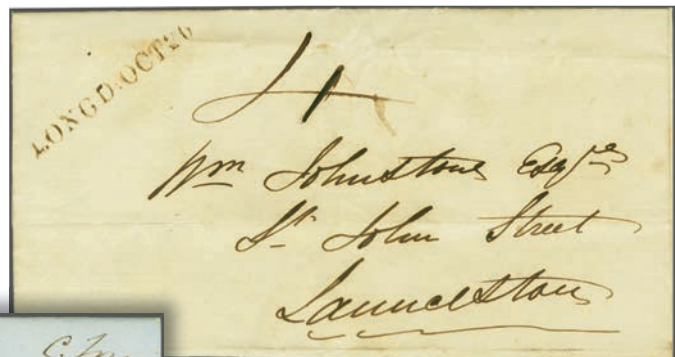 LONGD:OCT26
4
Wm Johnstone Esqre
St John Street
Launceston